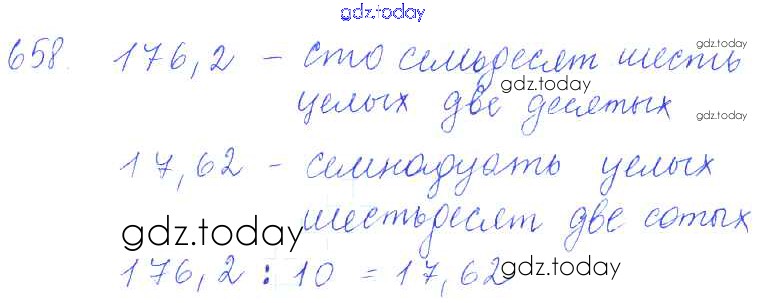 gdz.today
658. 176,2 – сто семьдесят шесть gdz.today
целых две десятых gdz.today
gdz.today
17,62 – семнадцать целых gdz.today
шестьдесят две сотых
gdz.today
176,2 : 10 = 17,62 gdz.today